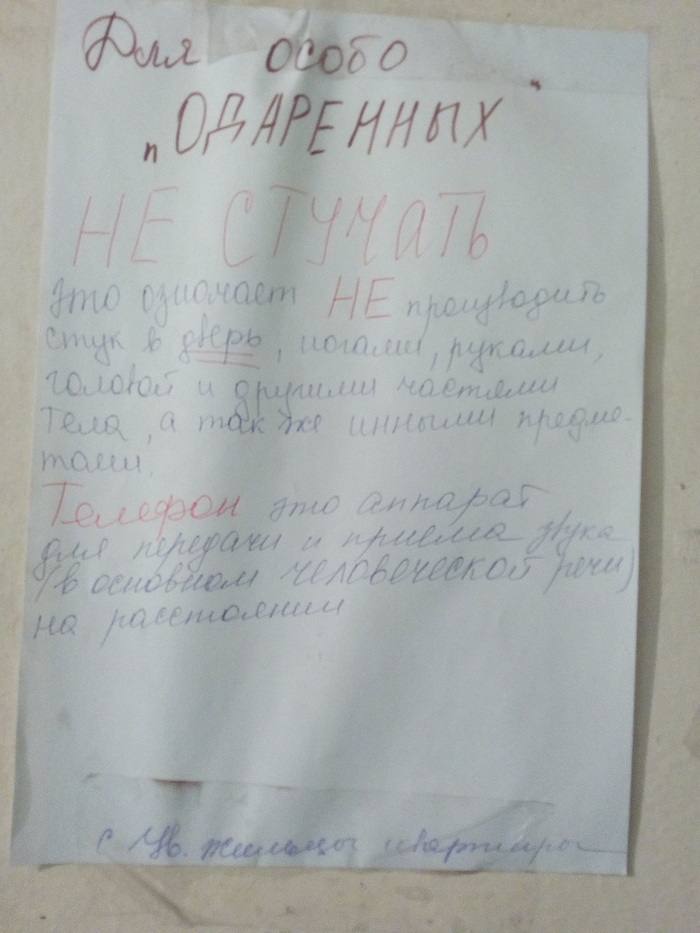 Для особо
„ОДАРЕННЫХ"
НЕ СТУЧАТЬ
это означает НЕ производить
стук в дверь, ногами, руками,
головой и другими частями
тела, а так же инными предме-
тами.
Телефон это аппарат
для передачи и приема звука
(в основном человеческой речи)
на расстоянии
с Ув. жильцы квартиры